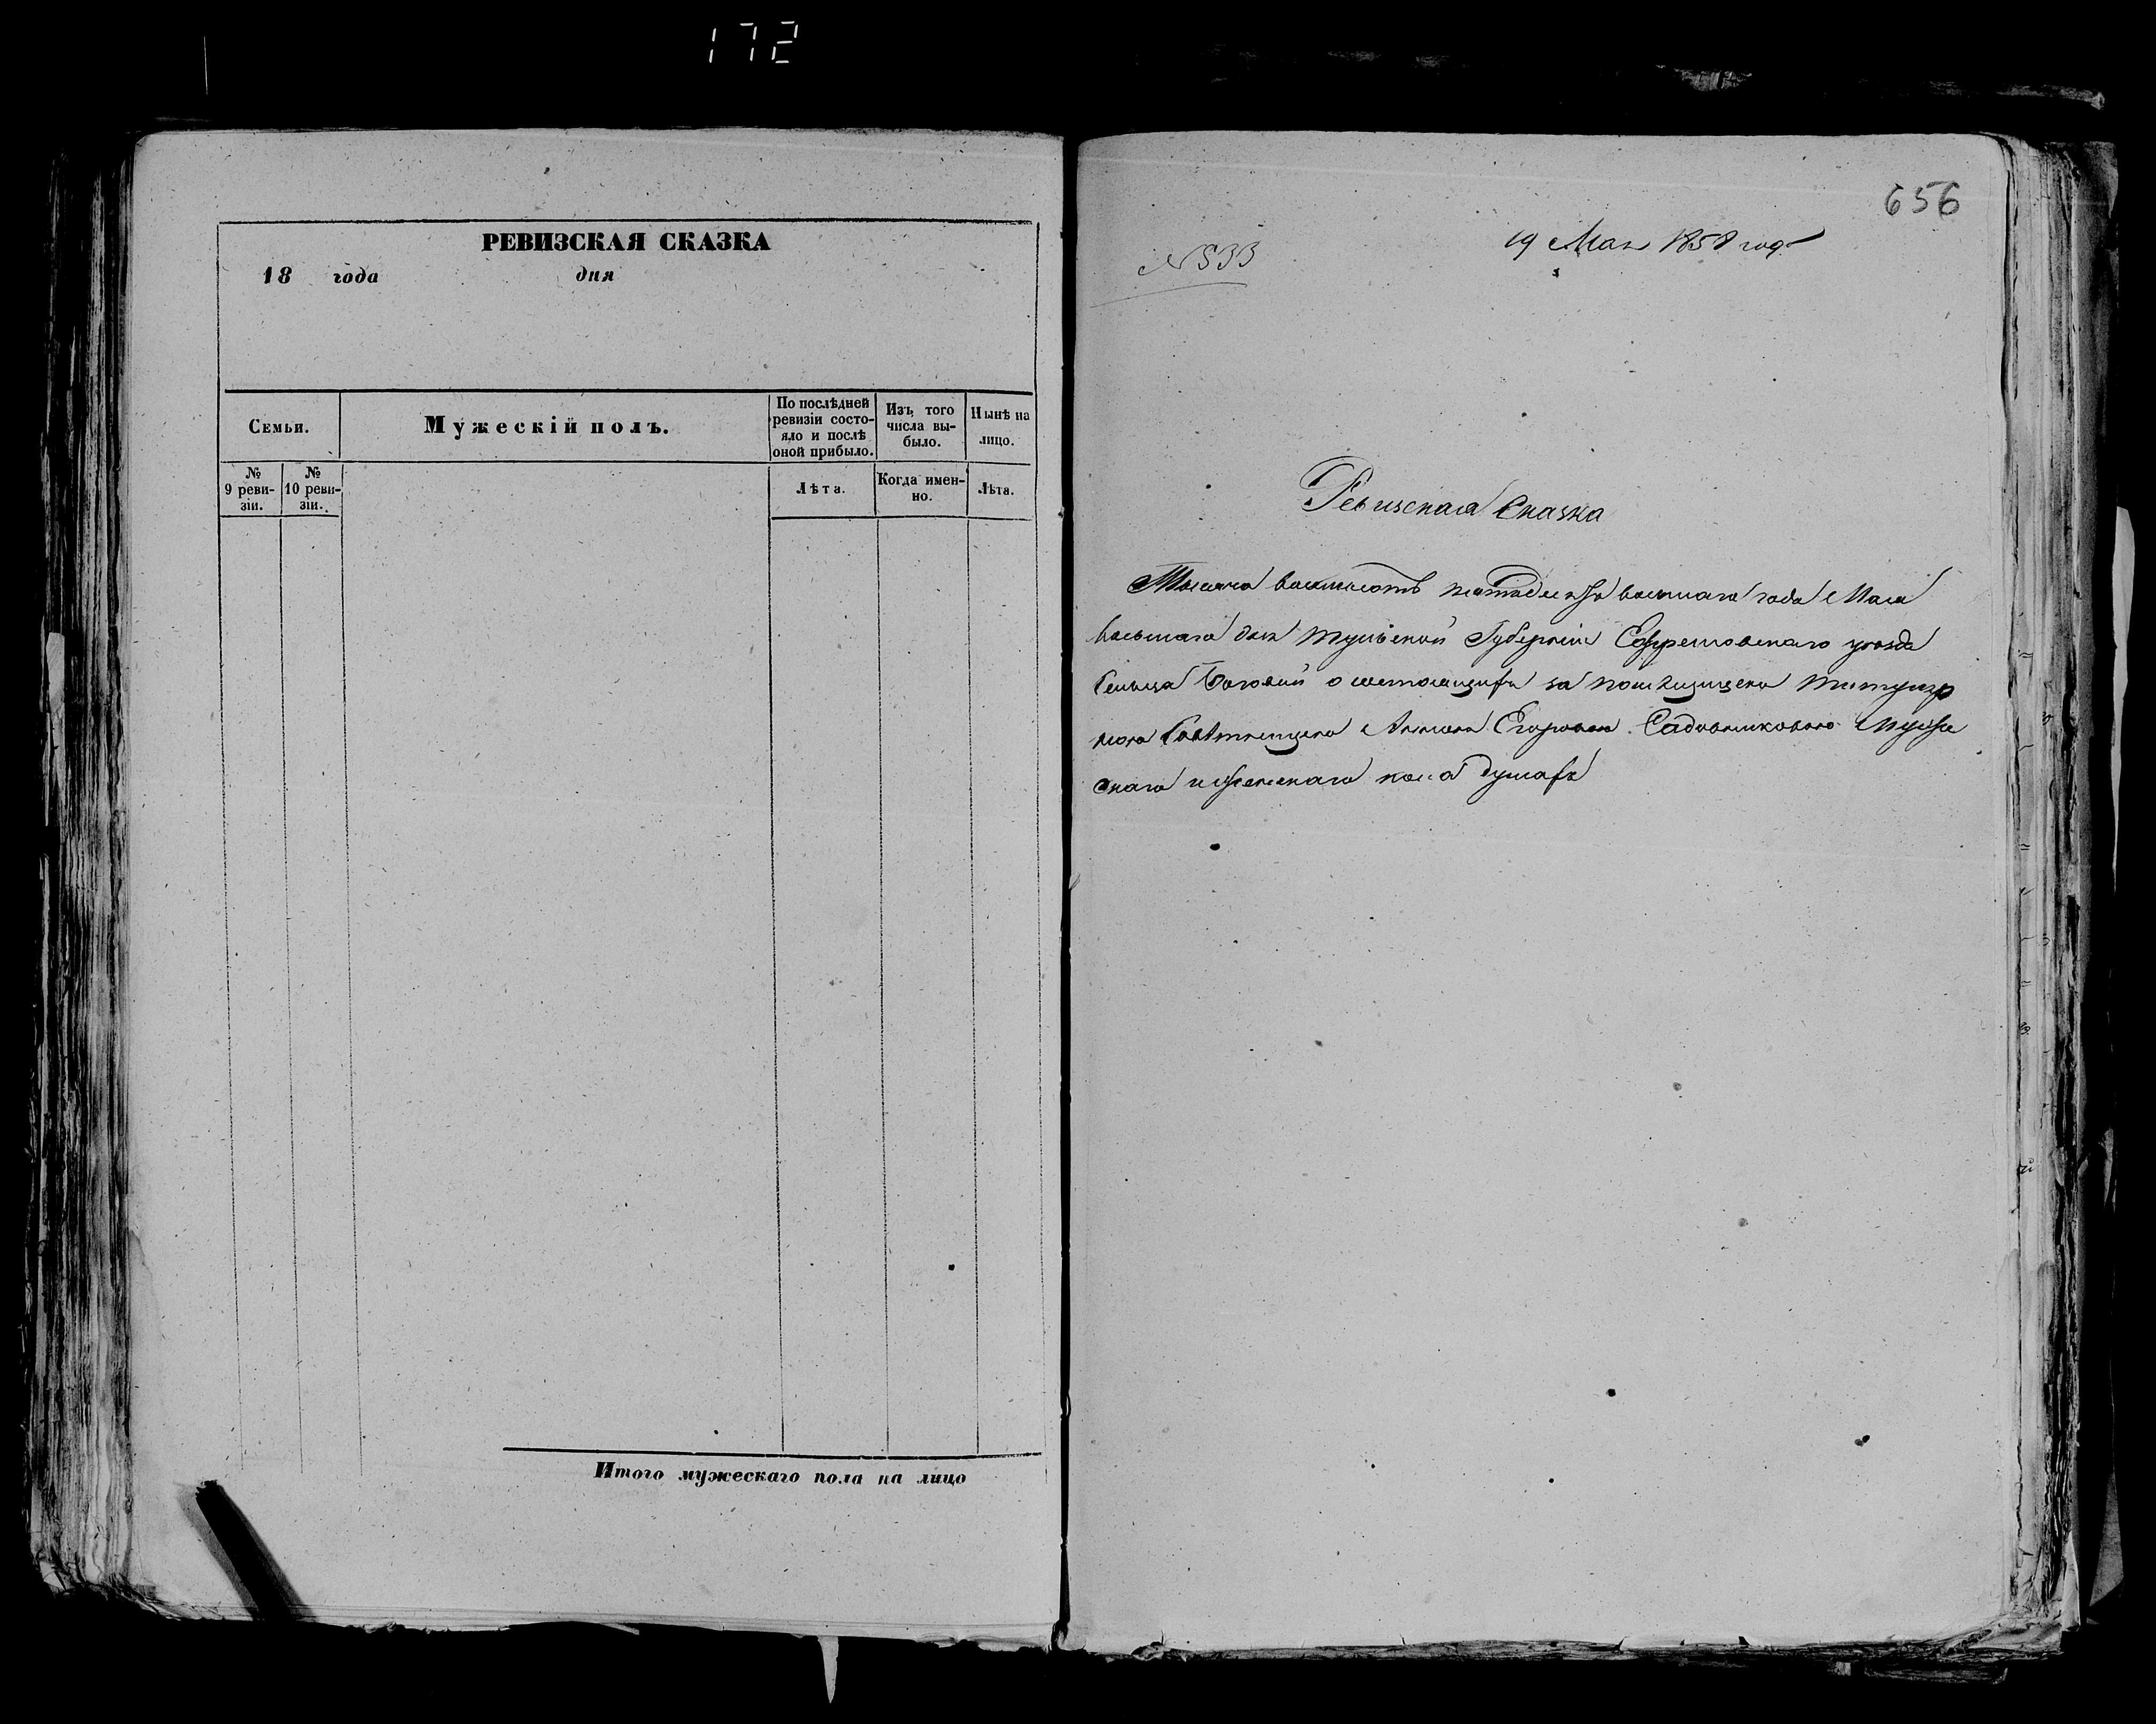 172
РЕВИЗСКАЯ СКАЗКА
18 года дня
Семьи.
Мужескій полъ.
По послѣдней
ревизіи состо-
яло и послѣ
оной прибыло.
Изъ того
числа вы-
было.
Нынѣ на
лицо.
№
9 реви-
зіи.
№
10 реви-
зіи.
Лѣта.
Когда имен-
но.
Лѣта.
Итого мужескаго пола на лицо
656
19 Мая 1858 год
№ 533
Ревизская Сказка
Тысяча восемьсотъ пятьдесятъ восьмаго года Мая
восьмаго дня Тульской Губерніи Ефремовскаго уезда
Сельца о состоящихъ за помещицею титуляр
ною Советницею Егоровою Садовниковою мужес
скаго и женскаго пола душахъ